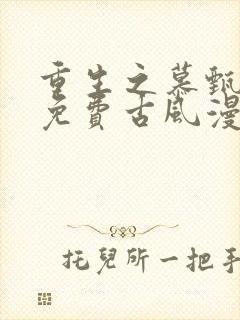 重生之慕甄
免費古風漫
托兒所一把手